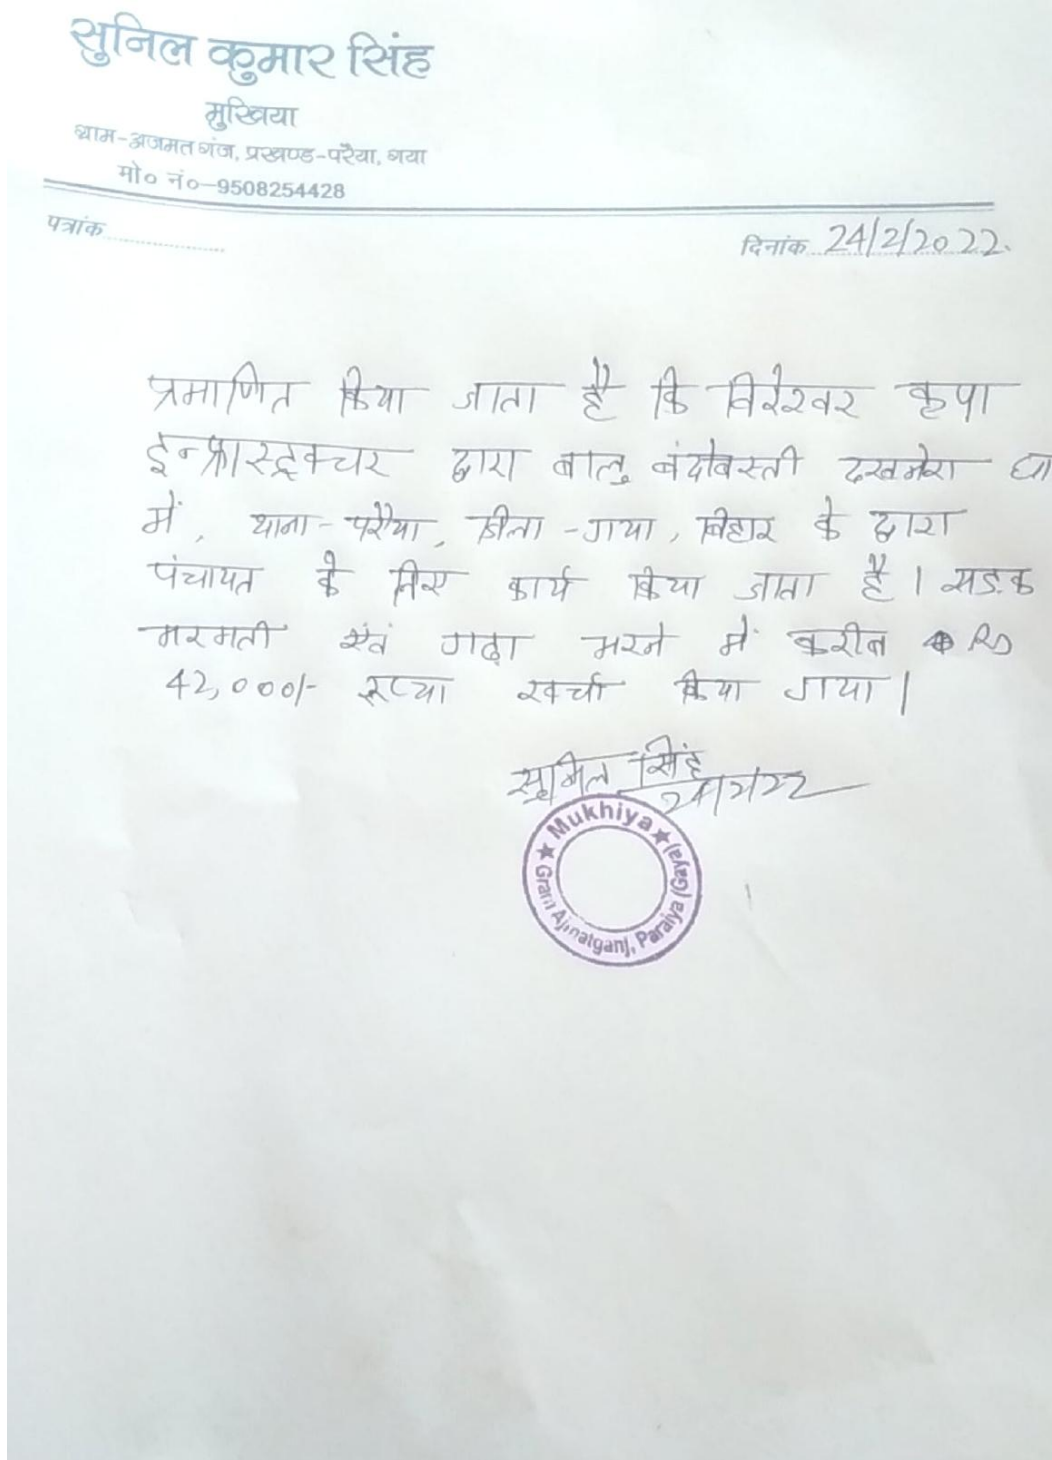 सुनिल कुमार सिंह
मुखिया
ग्राम-अजमतगंज, प्रखण्ड-परैया, गया
मो० नं०-9508254428
पत्रांक
दिनांक 24/2/2022.
प्रमाणित किया जाता है कि विरेश्वर कृपा
इन्फ्रास्ट्रक्चर द्वारा बालु बंदोबस्ती दखनेरा घा
में, थाना-परैया, जिला-गया, बिहार के द्वारा
पंचायत के लिए कार्य किया जाता है। सड़क
मरमती एवं गढ़ा भरने में करीब Rs
42,000/- रूपया खर्चा किया गया।
सुनिल सिंह
24/2/22
★ Mukhiya ★
Gram Ajmatganj, Paraiya (Gaya)